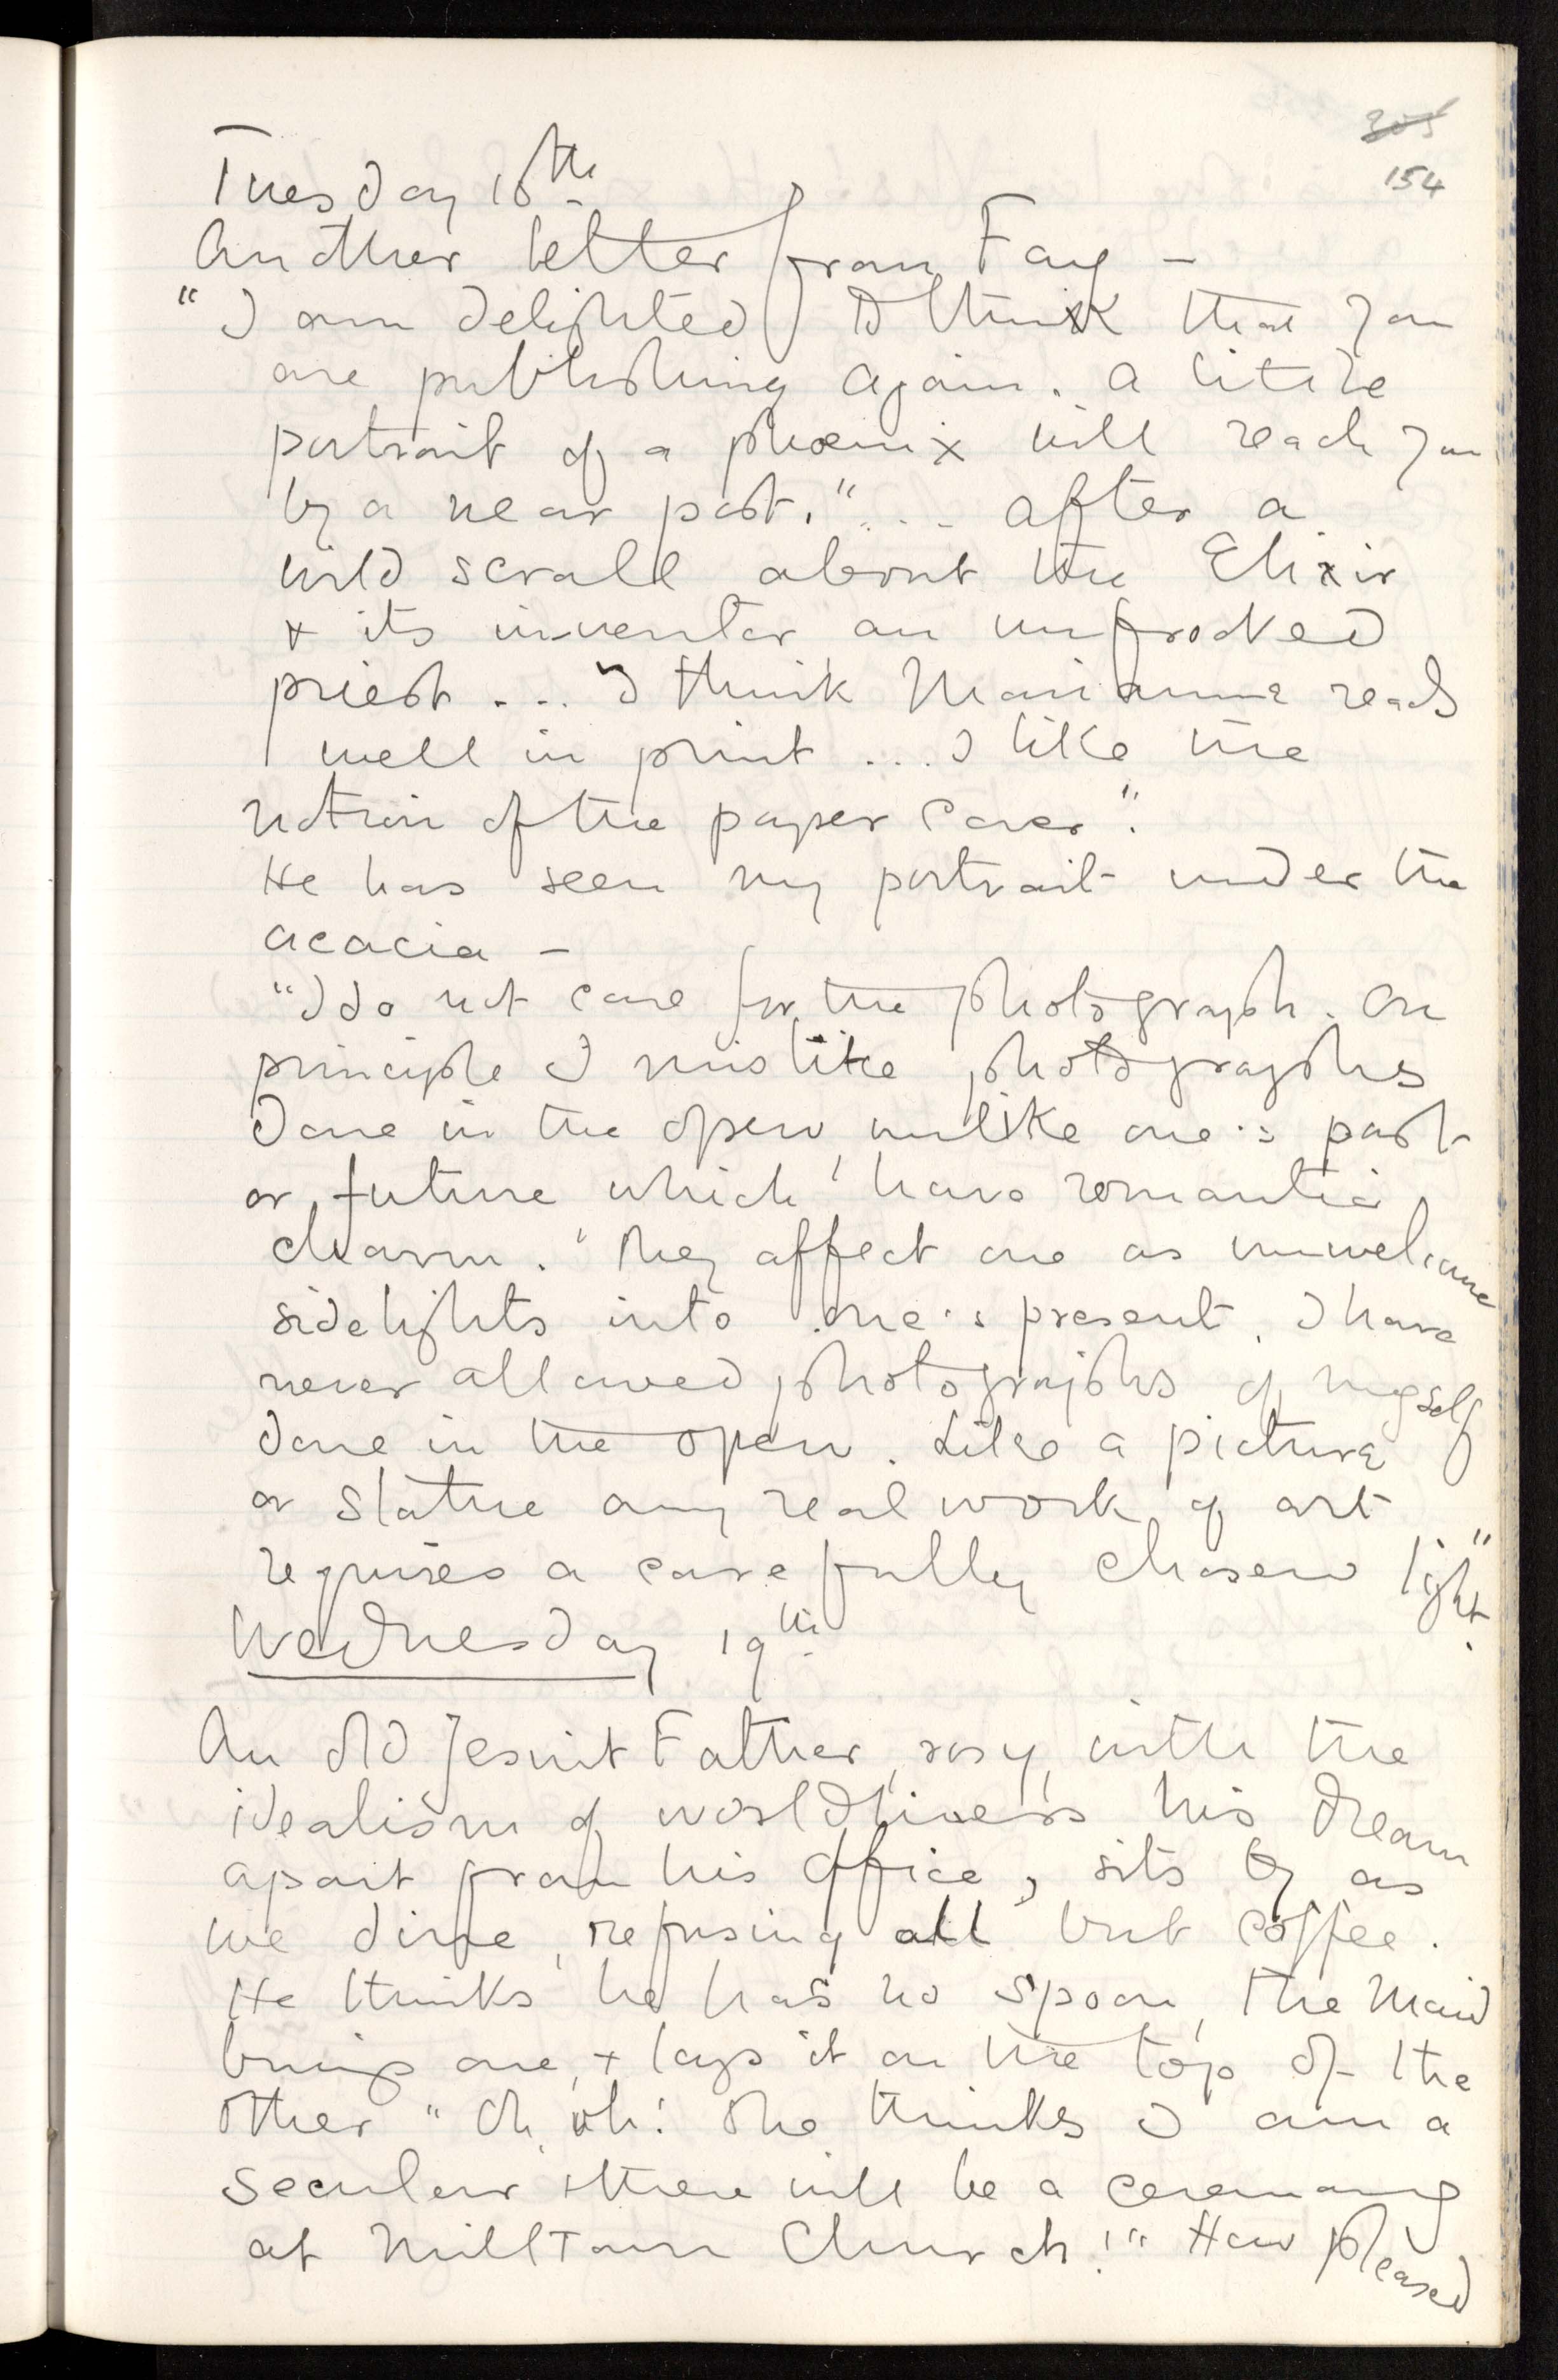 305
154
Tuesday 18th
Another letter from Fay –
"I am delighted to think that you
are publishing again. A little
portrait of a phoenix will reach you
by a near post." ... after a
wild scrall about the Elixir
+ its inventor an unfrocked
priest ... "I think Marianne reads
well in print ... I like the
notion of the paper cover".
He has seen my portrait under the
acacia –
"I do not care for the photograph. On
principle I mislike photographs
done in the open, unlike one's past
or future which have romantic
charm. They affect one as unwelcome
sidelights into one's present. I have
never allowed photographs of myself
done in the open. Like a picture
or statue any real work of art
requires a carefully chosen light".
Wednesday 19th
An old Jesuit Father, rosy, with the
idealism of worldliness his dream
apart from his office, sits by as
we dine, refusing all but coffee.
He thinks he has no spoon, the maid
brings one, + lays it on the top of the
other "Oh, oh! She thinks I am a
secular + there will be a ceremony
at Milltown Church!" How pleased